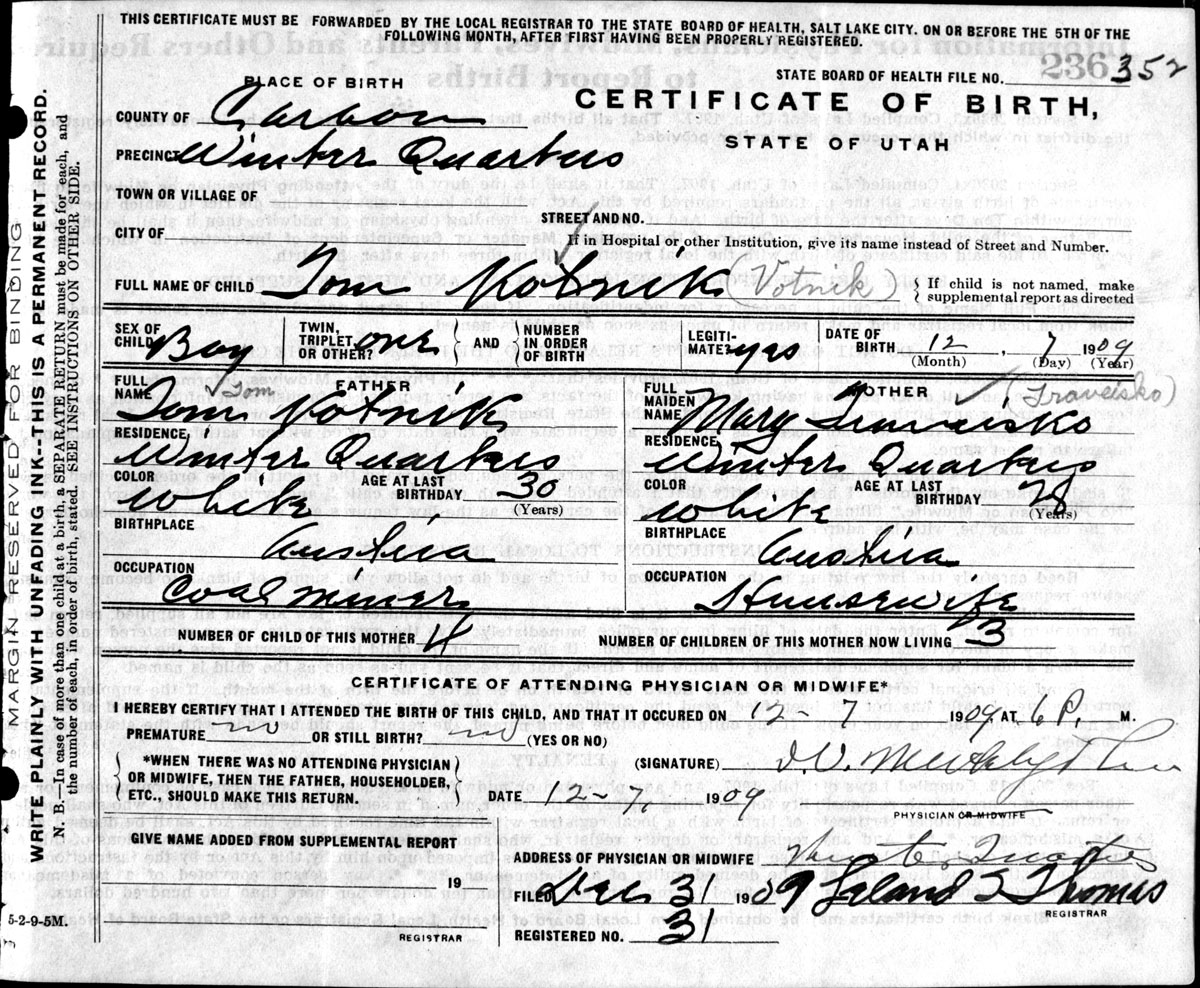 THIS CERTIFICATE MUST BE FORWARDED BY THE LOCAL REGISTRAR TO THE STATE BOARD OF HEALTH, SALT LAKE CITY. ON OR BEFORE THE 5TH OF THE
FOLLOWING MONTH, AFTER FIRST HAVING BEEN PROPERLY REGISTERED.
PLACE OF BIRTH
STATE BOARD OF HEALTH FILE NO. 236 352
COUNTY OF Carbon
CERTIFICATE OF BIRTH,
STATE OF UTAH
PRECINCT Winter Quarters
TOWN OR VILLAGE OF
STREET AND NO.
CITY OF
If in Hospital or other Institution, give its name instead of Street and Number.
FULL NAME OF CHILD Tom Kotnik (Votnik) { If child is not named, make
supplemental report as directed
SEX OF CHILD Boy
TWIN, TRIPLET OR OTHER? one { AND } NUMBER IN ORDER OF BIRTH
LEGITIMATE? yes
DATE OF BIRTH 12, 7 1909
(Month) (Day) (Year)
FATHER
FULL NAME Tom Kotnik
Tom
RESIDENCE Winter Quarters
COLOR White
AGE AT LAST BIRTHDAY 30
(Years)
BIRTHPLACE
Austria
OCCUPATION
Coal miner
MOTHER
FULL MAIDEN NAME Mary
(Traveisko)
RESIDENCE
Winter Quarters
COLOR White
AGE AT LAST BIRTHDAY 28
(Years)
BIRTHPLACE
Austria
OCCUPATION
Housewife
NUMBER OF CHILD OF THIS MOTHER 4
NO. OF CHILDREN OF THIS MOTHER NOW LIVING 3
CERTIFICATE OF ATTENDING PHYSICIAN OR MIDWIFE*
I HEREBY CERTIFY THAT I ATTENDED THE BIRTH OF THIS CHILD, AND THAT IT OCCURRED ON 12-7 1909 AT 6 P. M.
PREMATURE no OR STILL BIRTH? no (YES OR NO)
{ *WHEN THERE WAS NO ATTENDING PHYSICIAN
OR MIDWIFE, THEN THE FATHER, HOUSEHOLDER,
ETC., SHOULD MAKE THIS RETURN }
(SIGNATURE)
DATE 12-7 1909
PHYSICIAN OR MIDWIFE
GIVE NAME ADDED FROM SUPPLEMENTAL REPORT
19
REGISTRAR
ADDRESS OF PHYSICIAN OR MIDWIFE Winter Quarters
FILED Dec 31 1909 Leland S Thomas
REGISTRAR
REGISTERED NO. 31
MARGIN RESERVED FOR BINDING
WRITE PLAINLY WITH UNFADING INK--THIS IS A PERMANENT RECORD.
N. B.—In case of more than one child at a birth, a SEPARATE RETURN must be made for each, and
the number of each, in order of birth, stated. SEE INSTRUCTIONS ON OTHER SIDE.
5-2-9-5M.